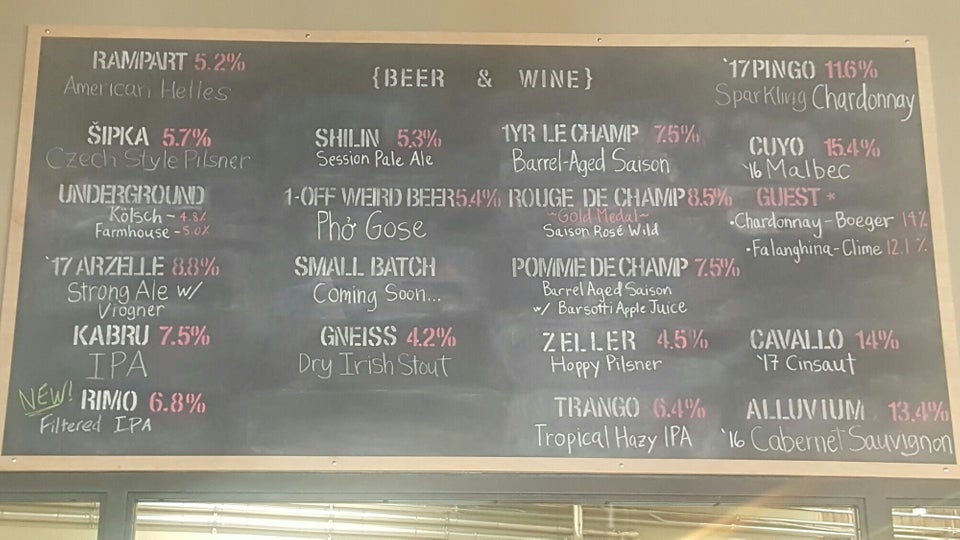 {BEER & WINE}
RAMPART 5.2%
American Helles
ŠIPKA 5.7%
Czech Style Pilsner
UNDERGROUND
Kölsch - 4.8%
Farmhouse - 5.0%
'17 ARZELLE 8.8%
Strong Ale w/
Viogner
KABRU 7.5%
IPA
NEW!
RIMO 6.8%
Filtered IPA
SHILIN 5.3%
Session Pale Ale
1-OFF WEIRD BEER 5.4%
Phở Gose
SMALL BATCH
Coming Soon...
GNEISS 4.2%
Dry Irish Stout
1YR LE CHAMP 7.5%
Barrel-Aged Saison
ROUGE DE CHAMP 8.5%
~Gold Medal~
Saison Rosé Wild
POMME DE CHAMP 7.5%
Barrel Aged Saison
w/ Barsotti Apple Juice
ZELLER 4.5%
Hoppy Pilsner
TRANGO 6.4%
Tropical Hazy IPA
'17 PINGO 11.6%
Sparkling Chardonnay
CUYO 15.4%
'16 Malbec
GUEST *
•Chardonnay-Boeger 14%
•Falanghina-Clime 12.1%
CAVALLO 14%
'17 Cinsaut
ALLUVIUM 13.4%
'16 Cabernet Sauvignon